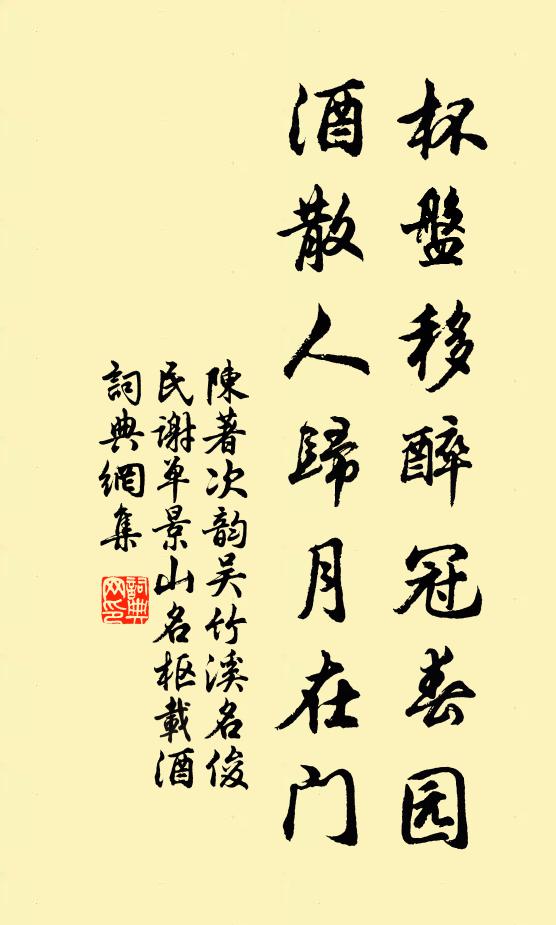 杯盤移醉冠春园
酒散人歸月在门
陳著次韵吴竹溪名俊
民谢单景山名枢載酒
詞典網集
詞典网印